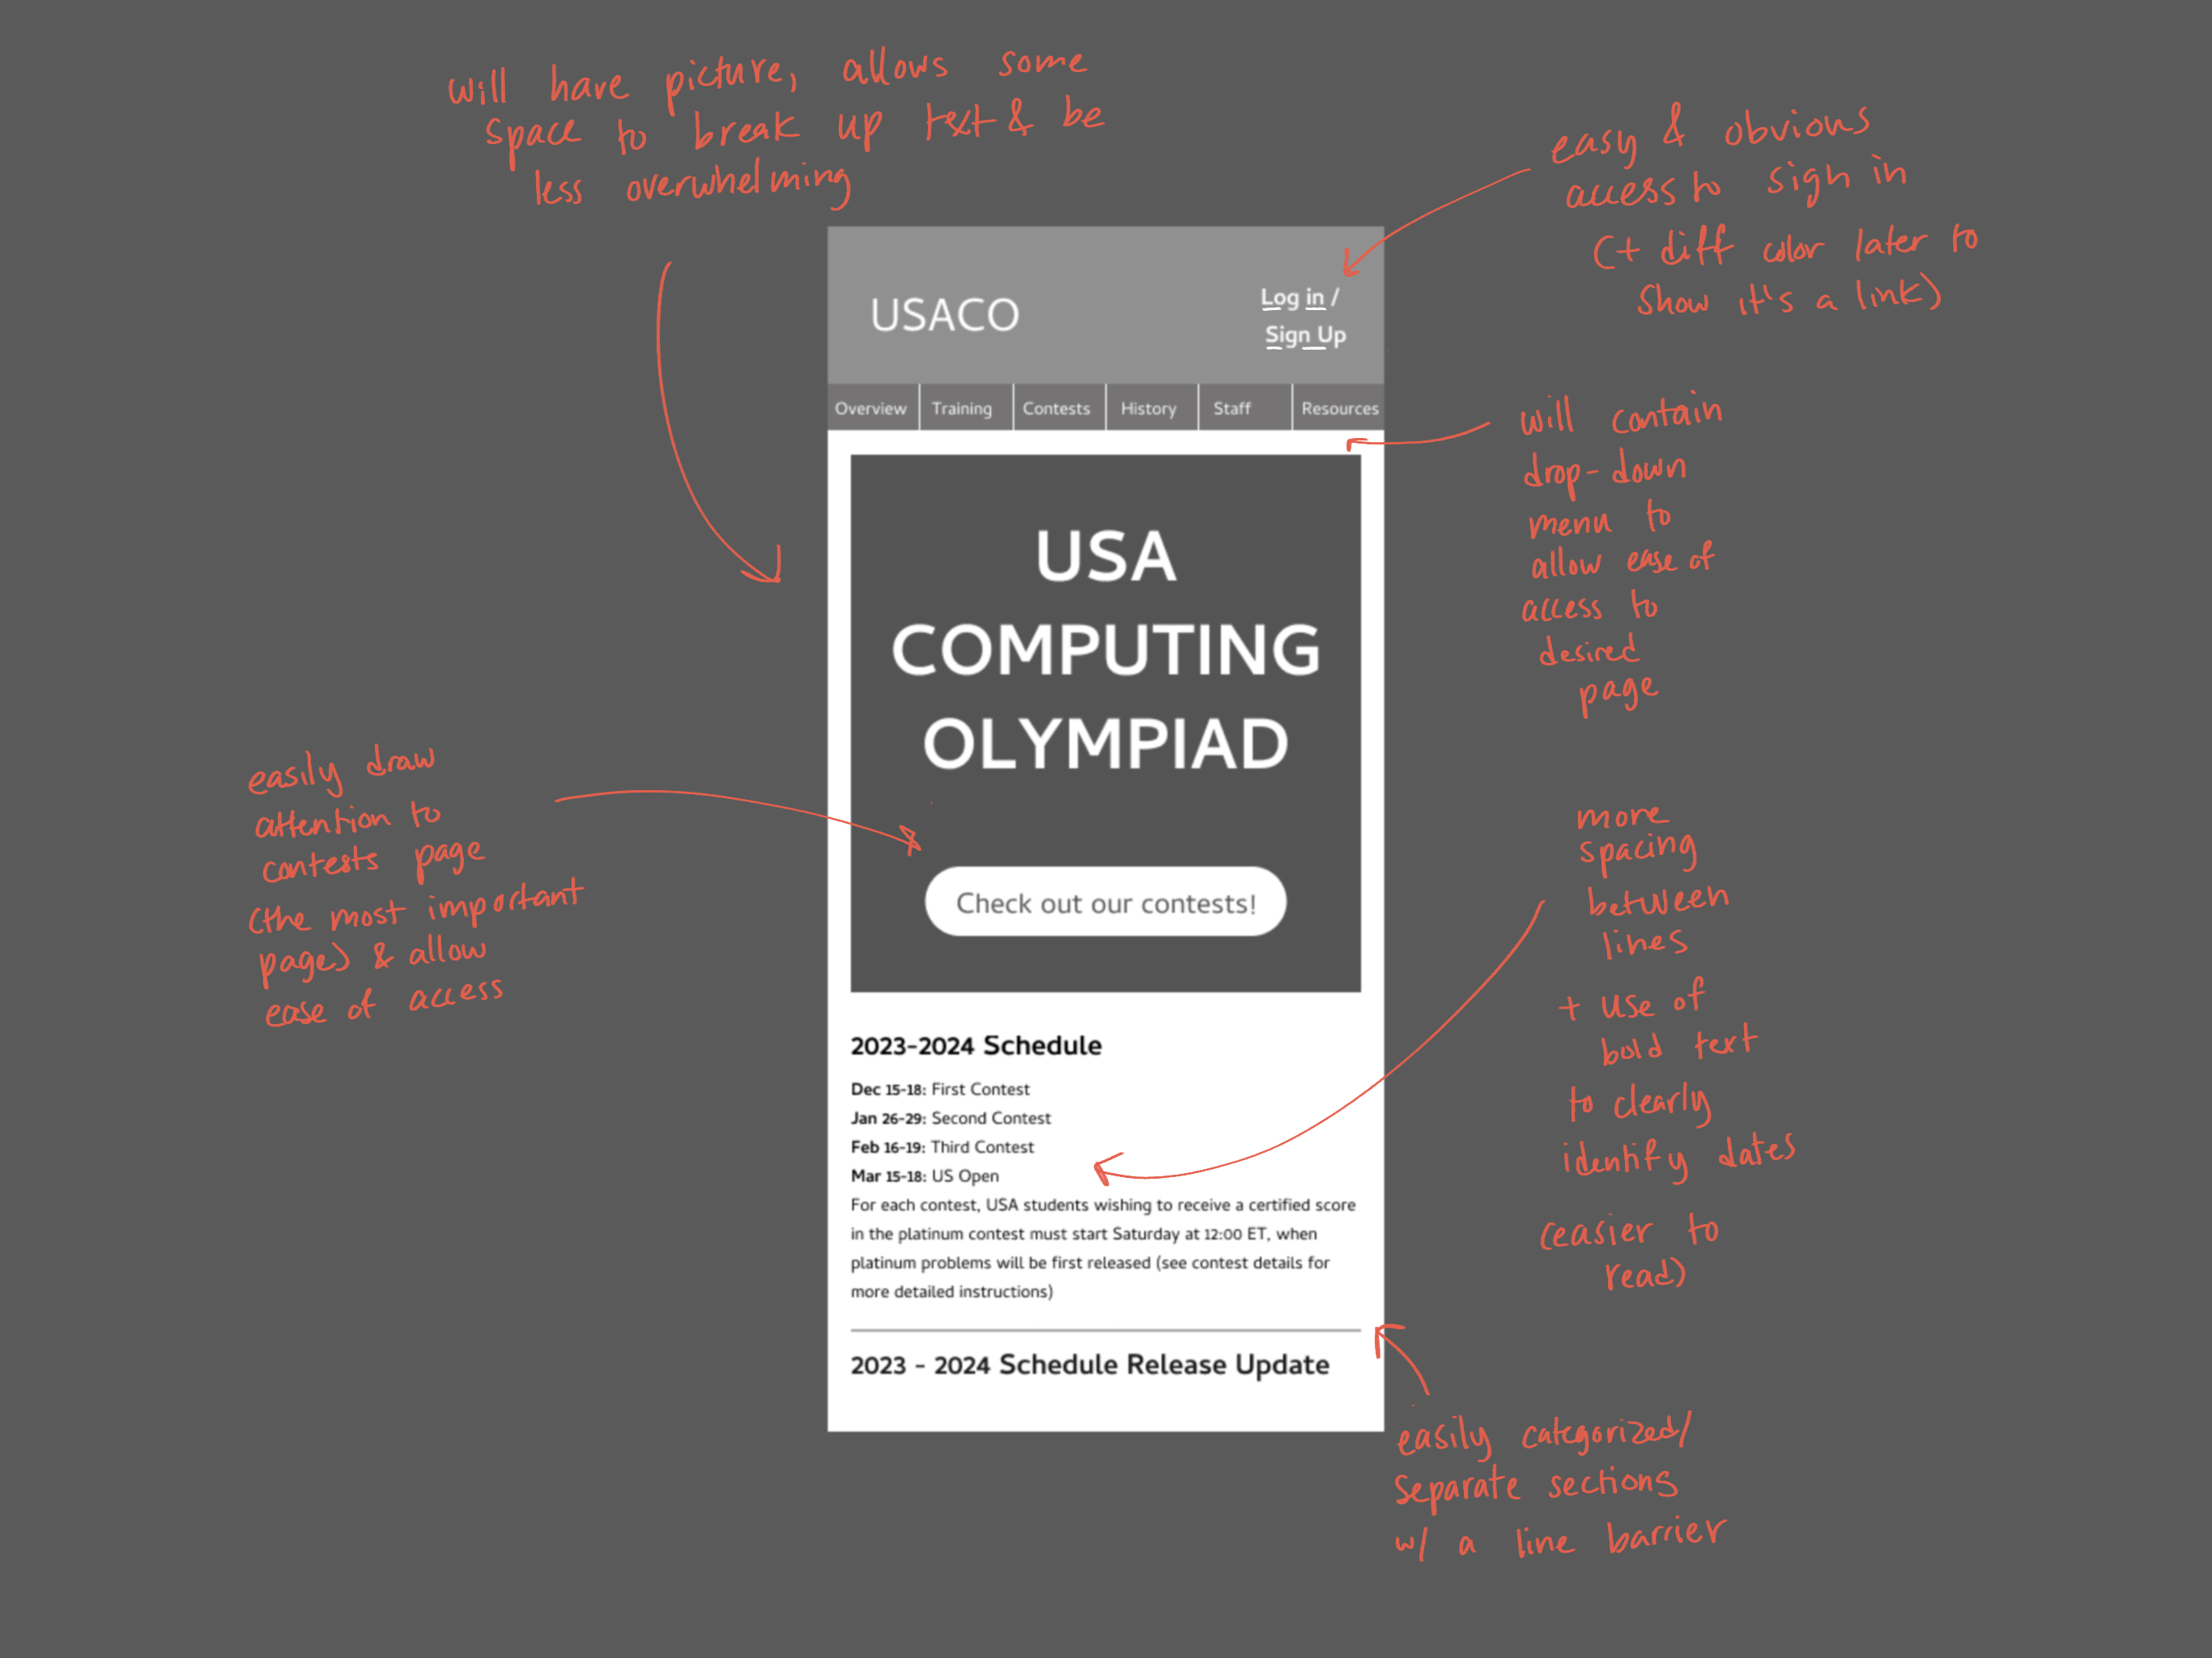 will have picture, allows some
space to break up text & be
less overwhelming
easy & obvious
access to sign in
(+ diff color later to
show it's a link)
USACO
Log in /
Sign Up
Overview
Training
Contests
History
Staff
Resources
will contain
drop-down
menu to
allow ease of
access to
desired
page
USA
COMPUTING
OLYMPIAD
Check out our contests!
easily draw
attention to
contests page
(the most important
page) & allow
ease of access
more
spacing
between
lines
+ use of
bold text
to clearly
identify dates
(easier to
read)
2023-2024 Schedule
Dec 15-18: First Contest
Jan 26-29: Second Contest
Feb 16-19: Third Contest
Mar 15-18: US Open
For each contest, USA students wishing to receive a certified score
in the platinum contest must start Saturday at 12:00 ET, when
platinum problems will be first released (see contest details for
more detailed instructions)
2023 - 2024 Schedule Release Update
easily categorized/
separate sections
w/ a line barrier